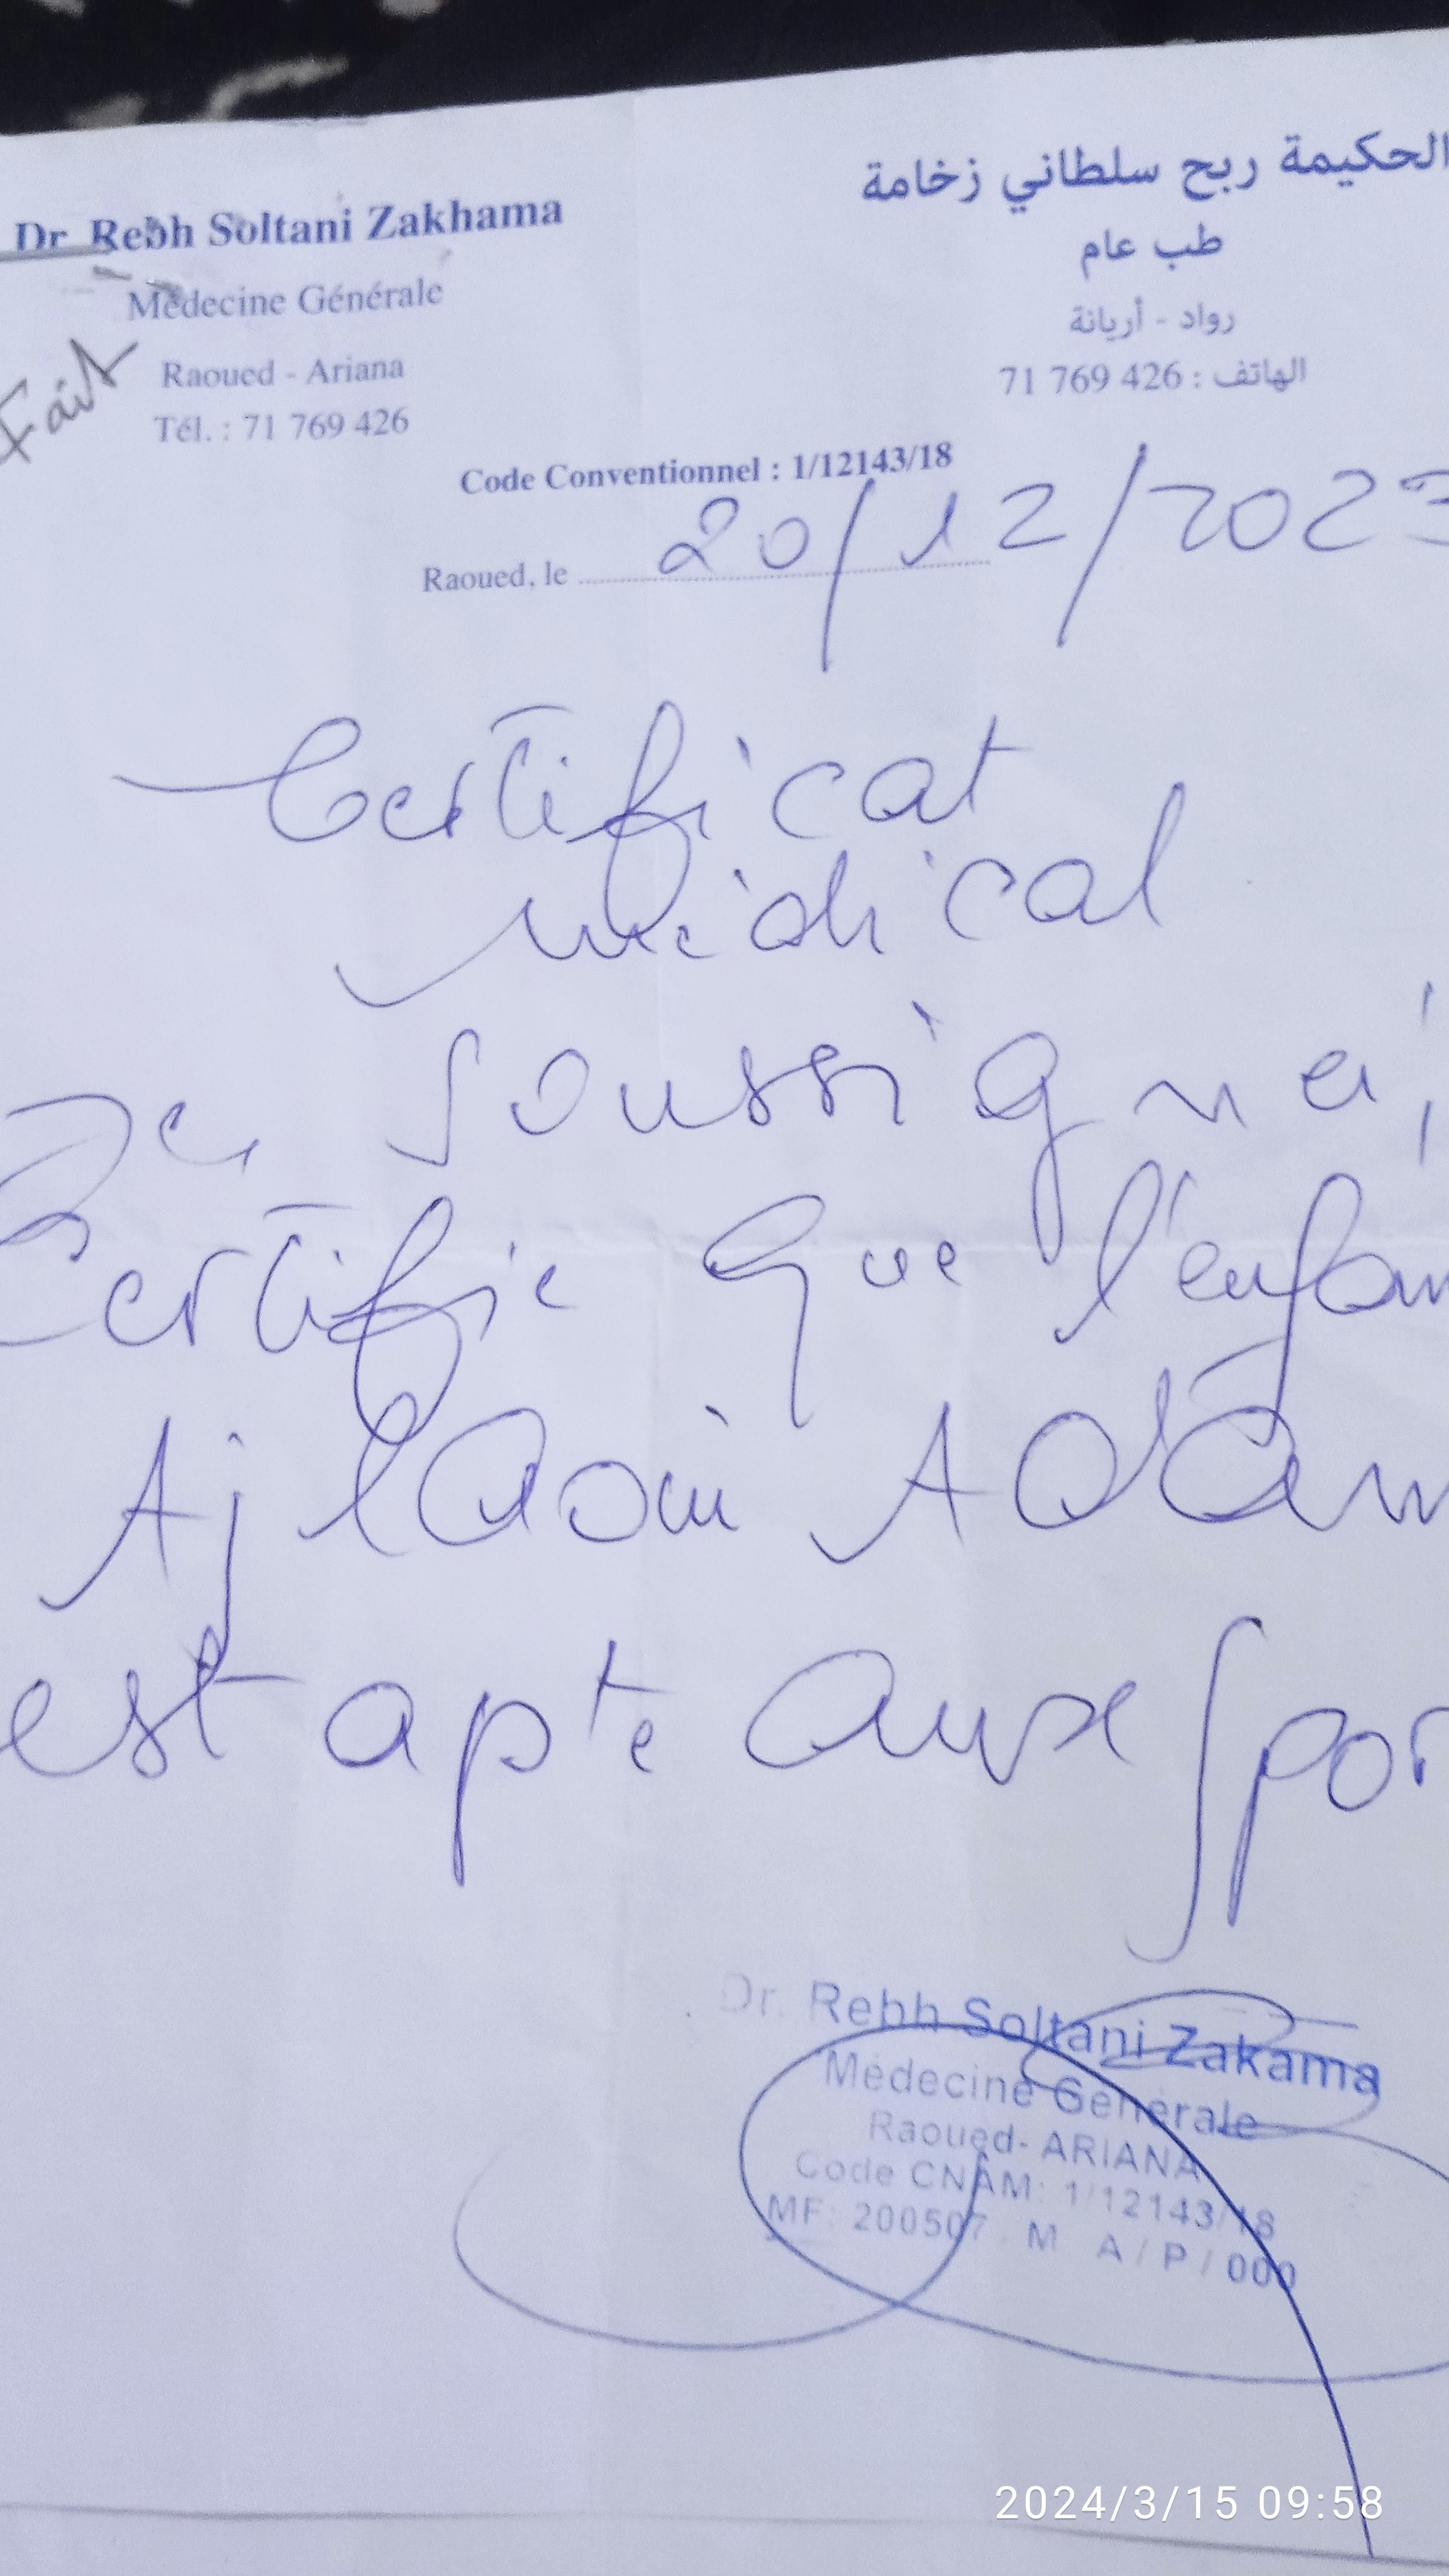 Dr Rebh Soltani Zakhama
Médecine Générale
Raoued - Ariana
Tél. : 71 769 426
Fait
الحكيمة ربح سلطاني زخامة
طب عام
رواد - أريانة
الهاتف : 426 769 71
Code Conventionnel : 1/12143/18
Raoued, le 20/12/2023
Certificat
médical
Je soussigné,
Certifie que l'enfan
Ajlaoui Adam
est apte aux spor
Dr. Rebh Soltani Zakama
Médecine Générale
Raoued- ARIANA
Code CNAM: 1/12143/18
MF: 200507 M A / P / 000
2024/3/15 09:58